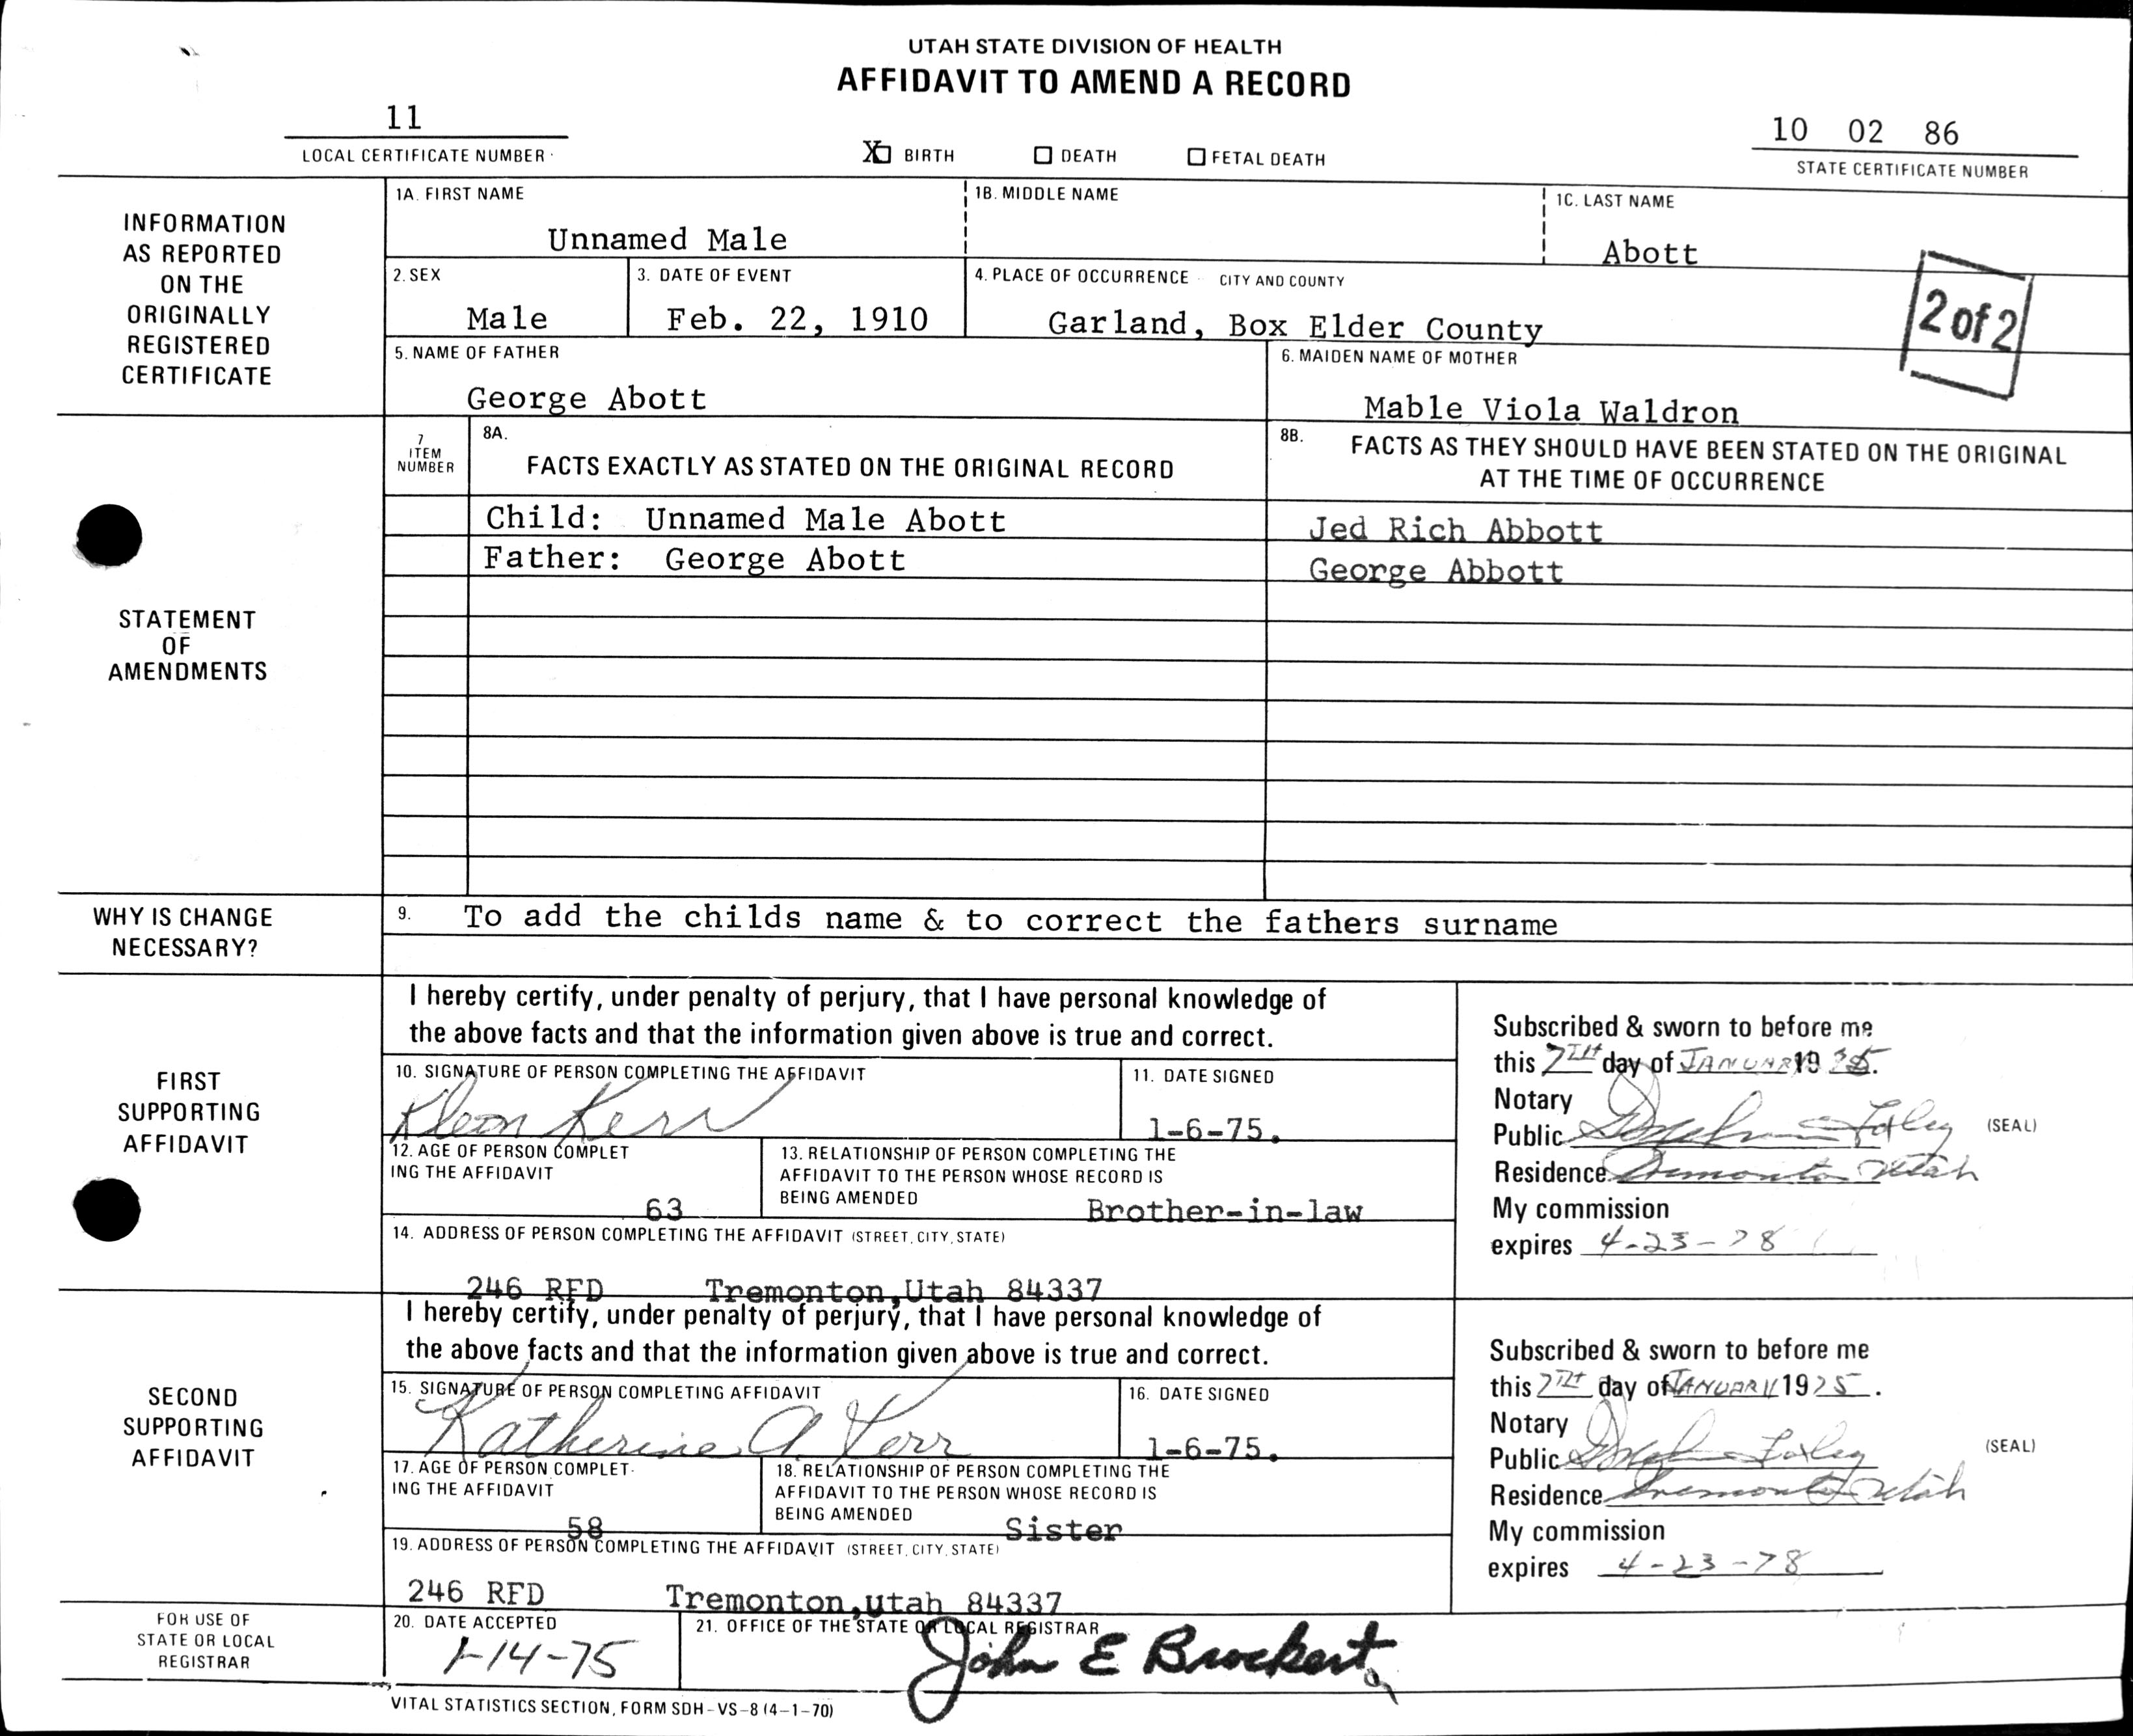 UTAH STATE DIVISION OF HEALTH
AFFIDAVIT TO AMEND A RECORD
11
LOCAL CERTIFICATE NUMBER
X BIRTH DEATH FETAL DEATH
10 02 86
STATE CERTIFICATE NUMBER
INFORMATION
AS REPORTED
ON THE
ORIGINALLY
REGISTERED
CERTIFICATE
1A. FIRST NAME
Unnamed Male
1B. MIDDLE NAME
1C. LAST NAME
Abott
2. SEX
Male
3. DATE OF EVENT
Feb. 22, 1910
4. PLACE OF OCCURRENCE CITY AND COUNTY
Garland, Box Elder County
2 of 2
5. NAME OF FATHER
George Abott
6. MAIDEN NAME OF MOTHER
Mable Viola Waldron
STATEMENT
OF
AMENDMENTS
7
ITEM
NUMBER
8A.
FACTS EXACTLY AS STATED ON THE ORIGINAL RECORD
8B. FACTS AS THEY SHOULD HAVE BEEN STATED ON THE ORIGINAL
AT THE TIME OF OCCURRENCE
Child: Unnamed Male Abott
Jed Rich Abbott
Father: George Abott
George Abbott
WHY IS CHANGE
NECESSARY?
9. To add the childs name & to correct the fathers surname
FIRST
SUPPORTING
AFFIDAVIT
I hereby certify, under penalty of perjury, that I have personal knowledge of
the above facts and that the information given above is true and correct.
10. SIGNATURE OF PERSON COMPLETING THE AFFIDAVIT
Kleon Kerr
11. DATE SIGNED
1-6-75.
12. AGE OF PERSON COMPLET
ING THE AFFIDAVIT
63
13. RELATIONSHIP OF PERSON COMPLETING THE
AFFIDAVIT TO THE PERSON WHOSE RECORD IS
BEING AMENDED
Brother-in-law
14. ADDRESS OF PERSON COMPLETING THE AFFIDAVIT (STREET, CITY, STATE)
246 RFD Tremonton,Utah 84337
Subscribed & sworn to before me
this 7TH day of JANUARY 19 75.
Notary
Public Foley (SEAL)
Residence Tremonton Utah
My commission
expires 4-23-78
SECOND
SUPPORTING
AFFIDAVIT
I hereby certify, under penalty of perjury, that I have personal knowledge of
the above facts and that the information given above is true and correct.
15. SIGNATURE OF PERSON COMPLETING AFFIDAVIT
Katherine A Kerr
16. DATE SIGNED
1-6-75.
17. AGE OF PERSON COMPLET-
ING THE AFFIDAVIT
58
18. RELATIONSHIP OF PERSON COMPLETING THE
AFFIDAVIT TO THE PERSON WHOSE RECORD IS
BEING AMENDED
Sister
19. ADDRESS OF PERSON COMPLETING THE AFFIDAVIT (STREET, CITY, STATE)
246 RFD Tremonton,utah 84337
Subscribed & sworn to before me
this 7TH day of JANUARY 1975.
Notary
Public Foley (SEAL)
Residence Tremonton Utah
My commission
expires 4-23-78
FOR USE OF
STATE OR LOCAL
REGISTRAR
20. DATE ACCEPTED
1-14-75
21. OFFICE OF THE STATE OR LOCAL REGISTRAR
John E Brockert
VITAL STATISTICS SECTION, FORM SDH-VS-8 (4-1-70)